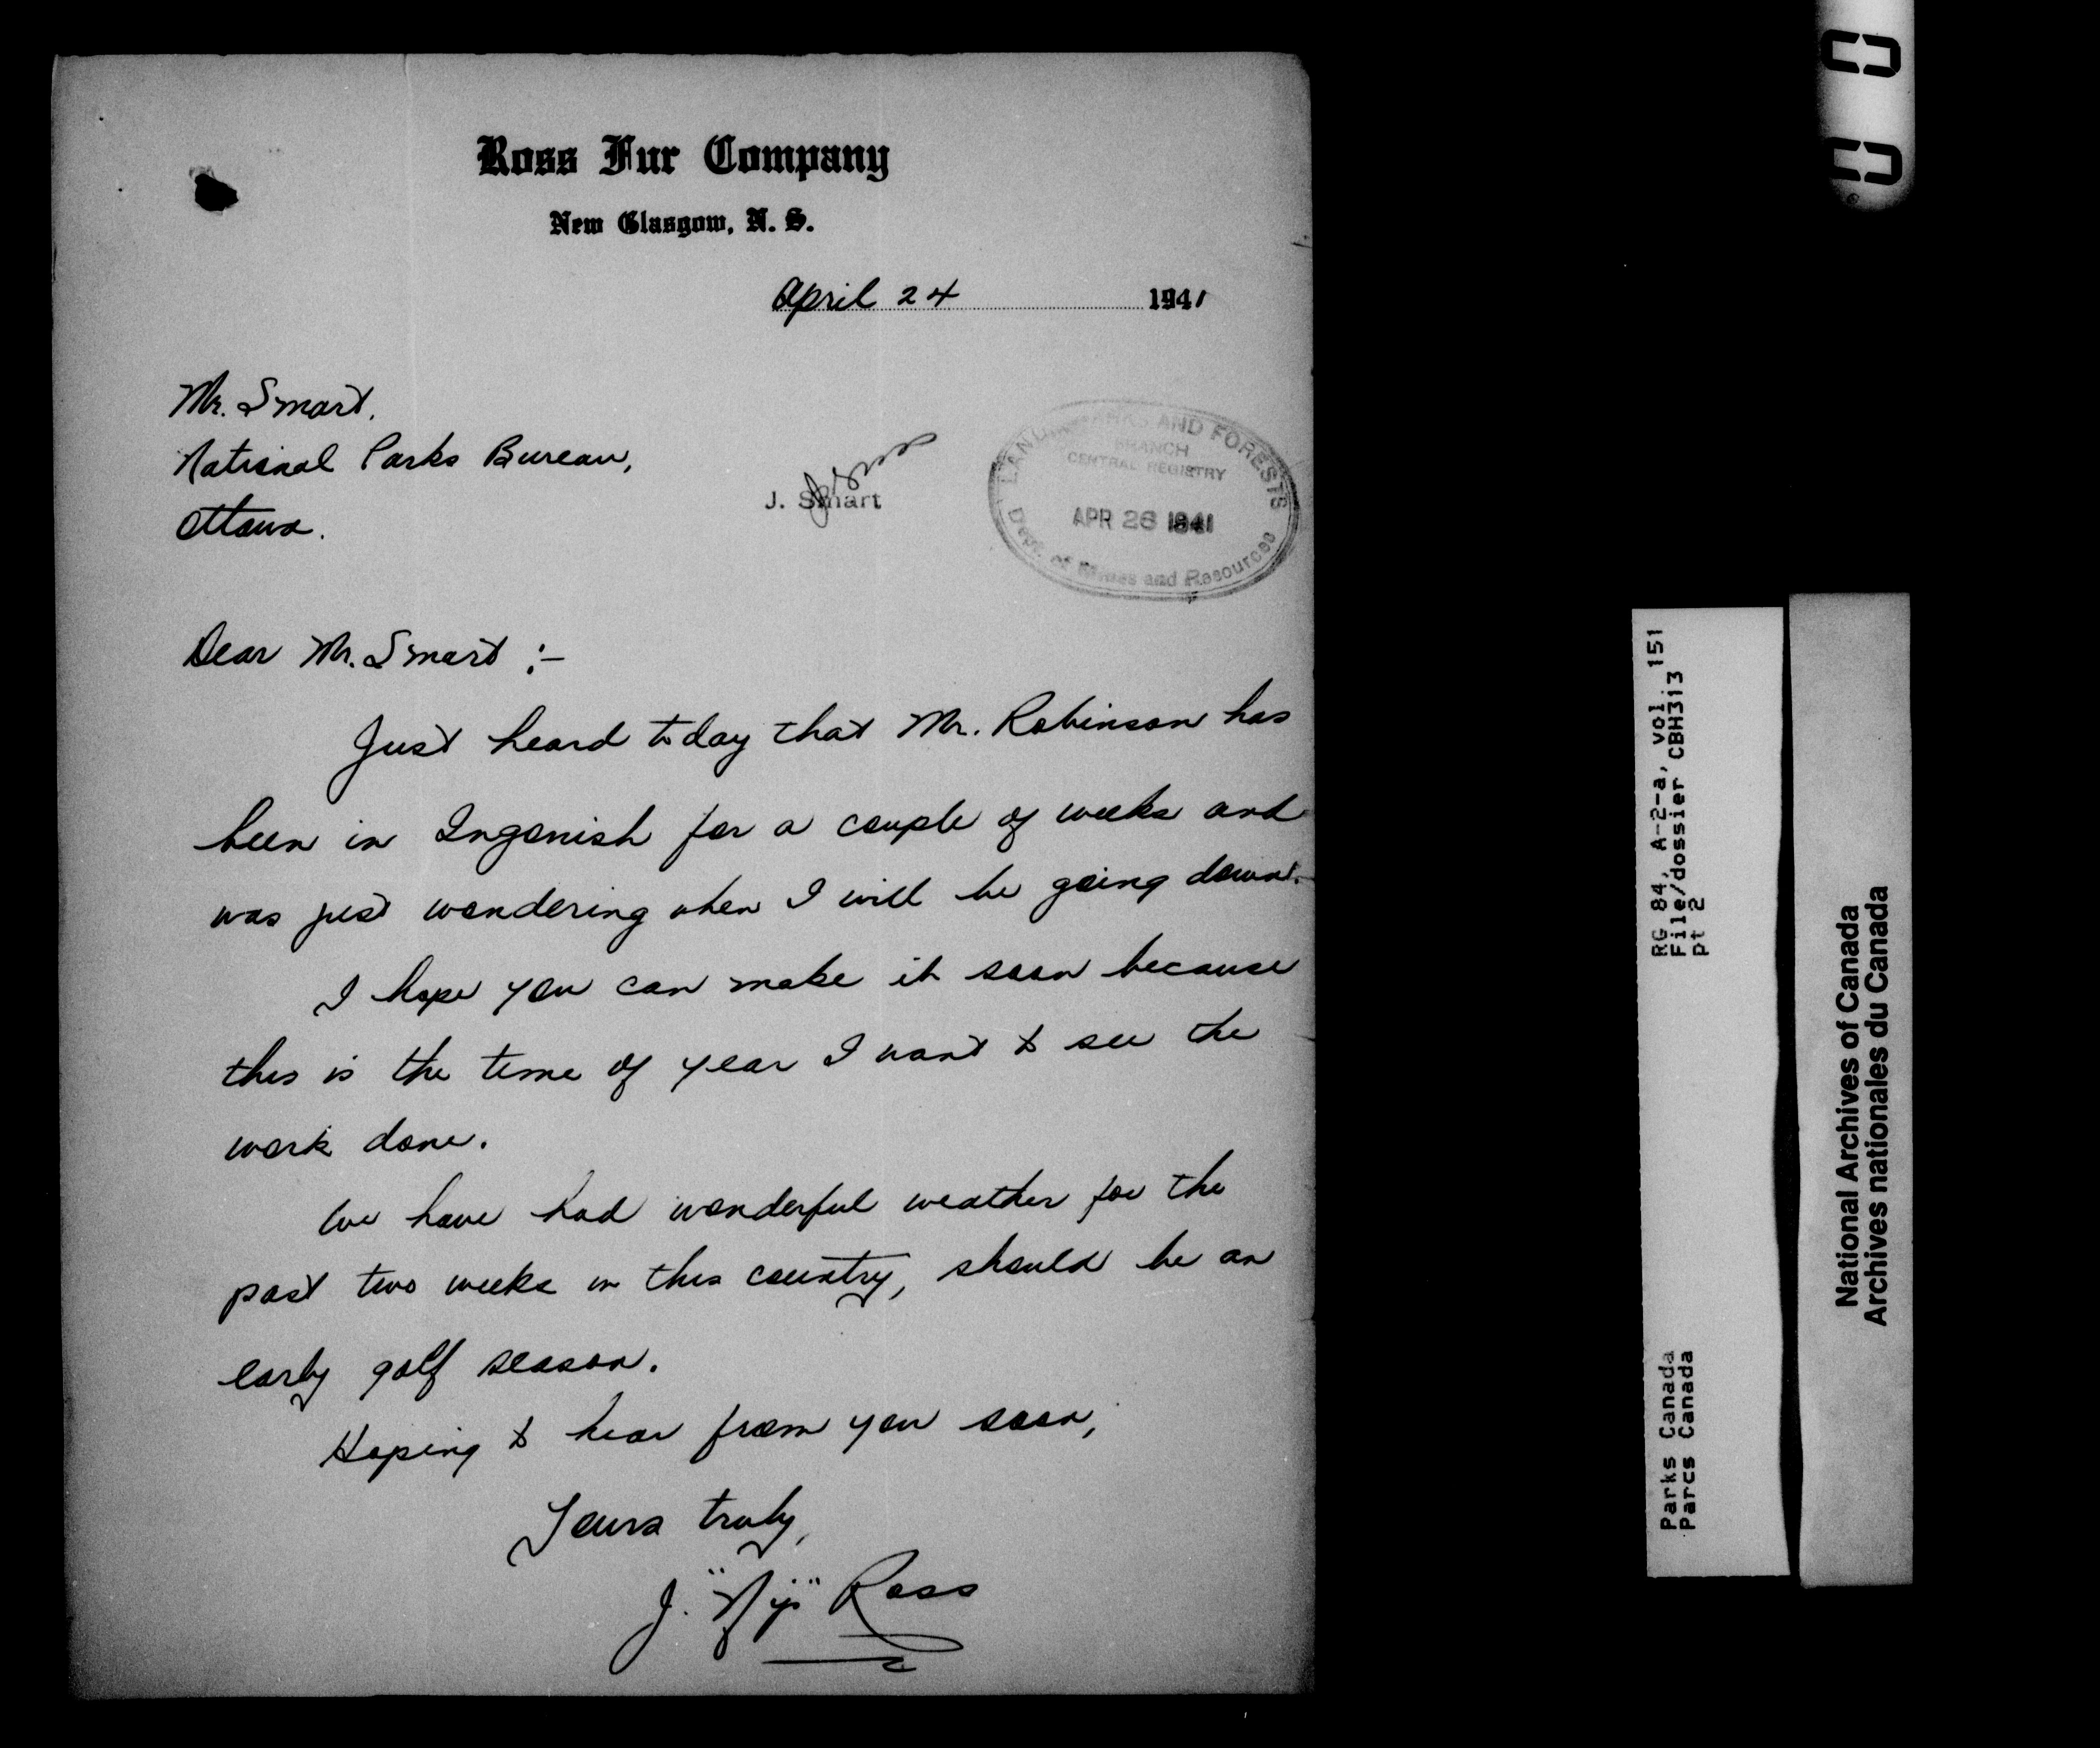 Ross Fur Company
New Glasgow, N. S.
April 24 1941
Mr. Smart,
National Parks Bureau,
Ottawa.
J. Smart
LANDS, PARKS AND FORESTS
BRANCH
CENTRAL REGISTRY
APR 26 1941
Dept. of Mines and Resources
Dear Mr. Smart :-
Just heard today that Mr. Robinson has
been in Ingonish for a couple of weeks and
was just wondering when I will be going down.
I hope you can make it soon because
this is the time of year I want to see the
work done.
We have had wonderful weather for the
past two weeks in this country, should be an
early golf season.
Hoping to hear from you soon,
Yours truly,
J. "Nip" Ross
RG 84, A-2-a, vol. 151
File/dossier CBH313
pt 2
Parks Canada
Parcs Canada
National Archives of Canada
Archives nationales du Canada